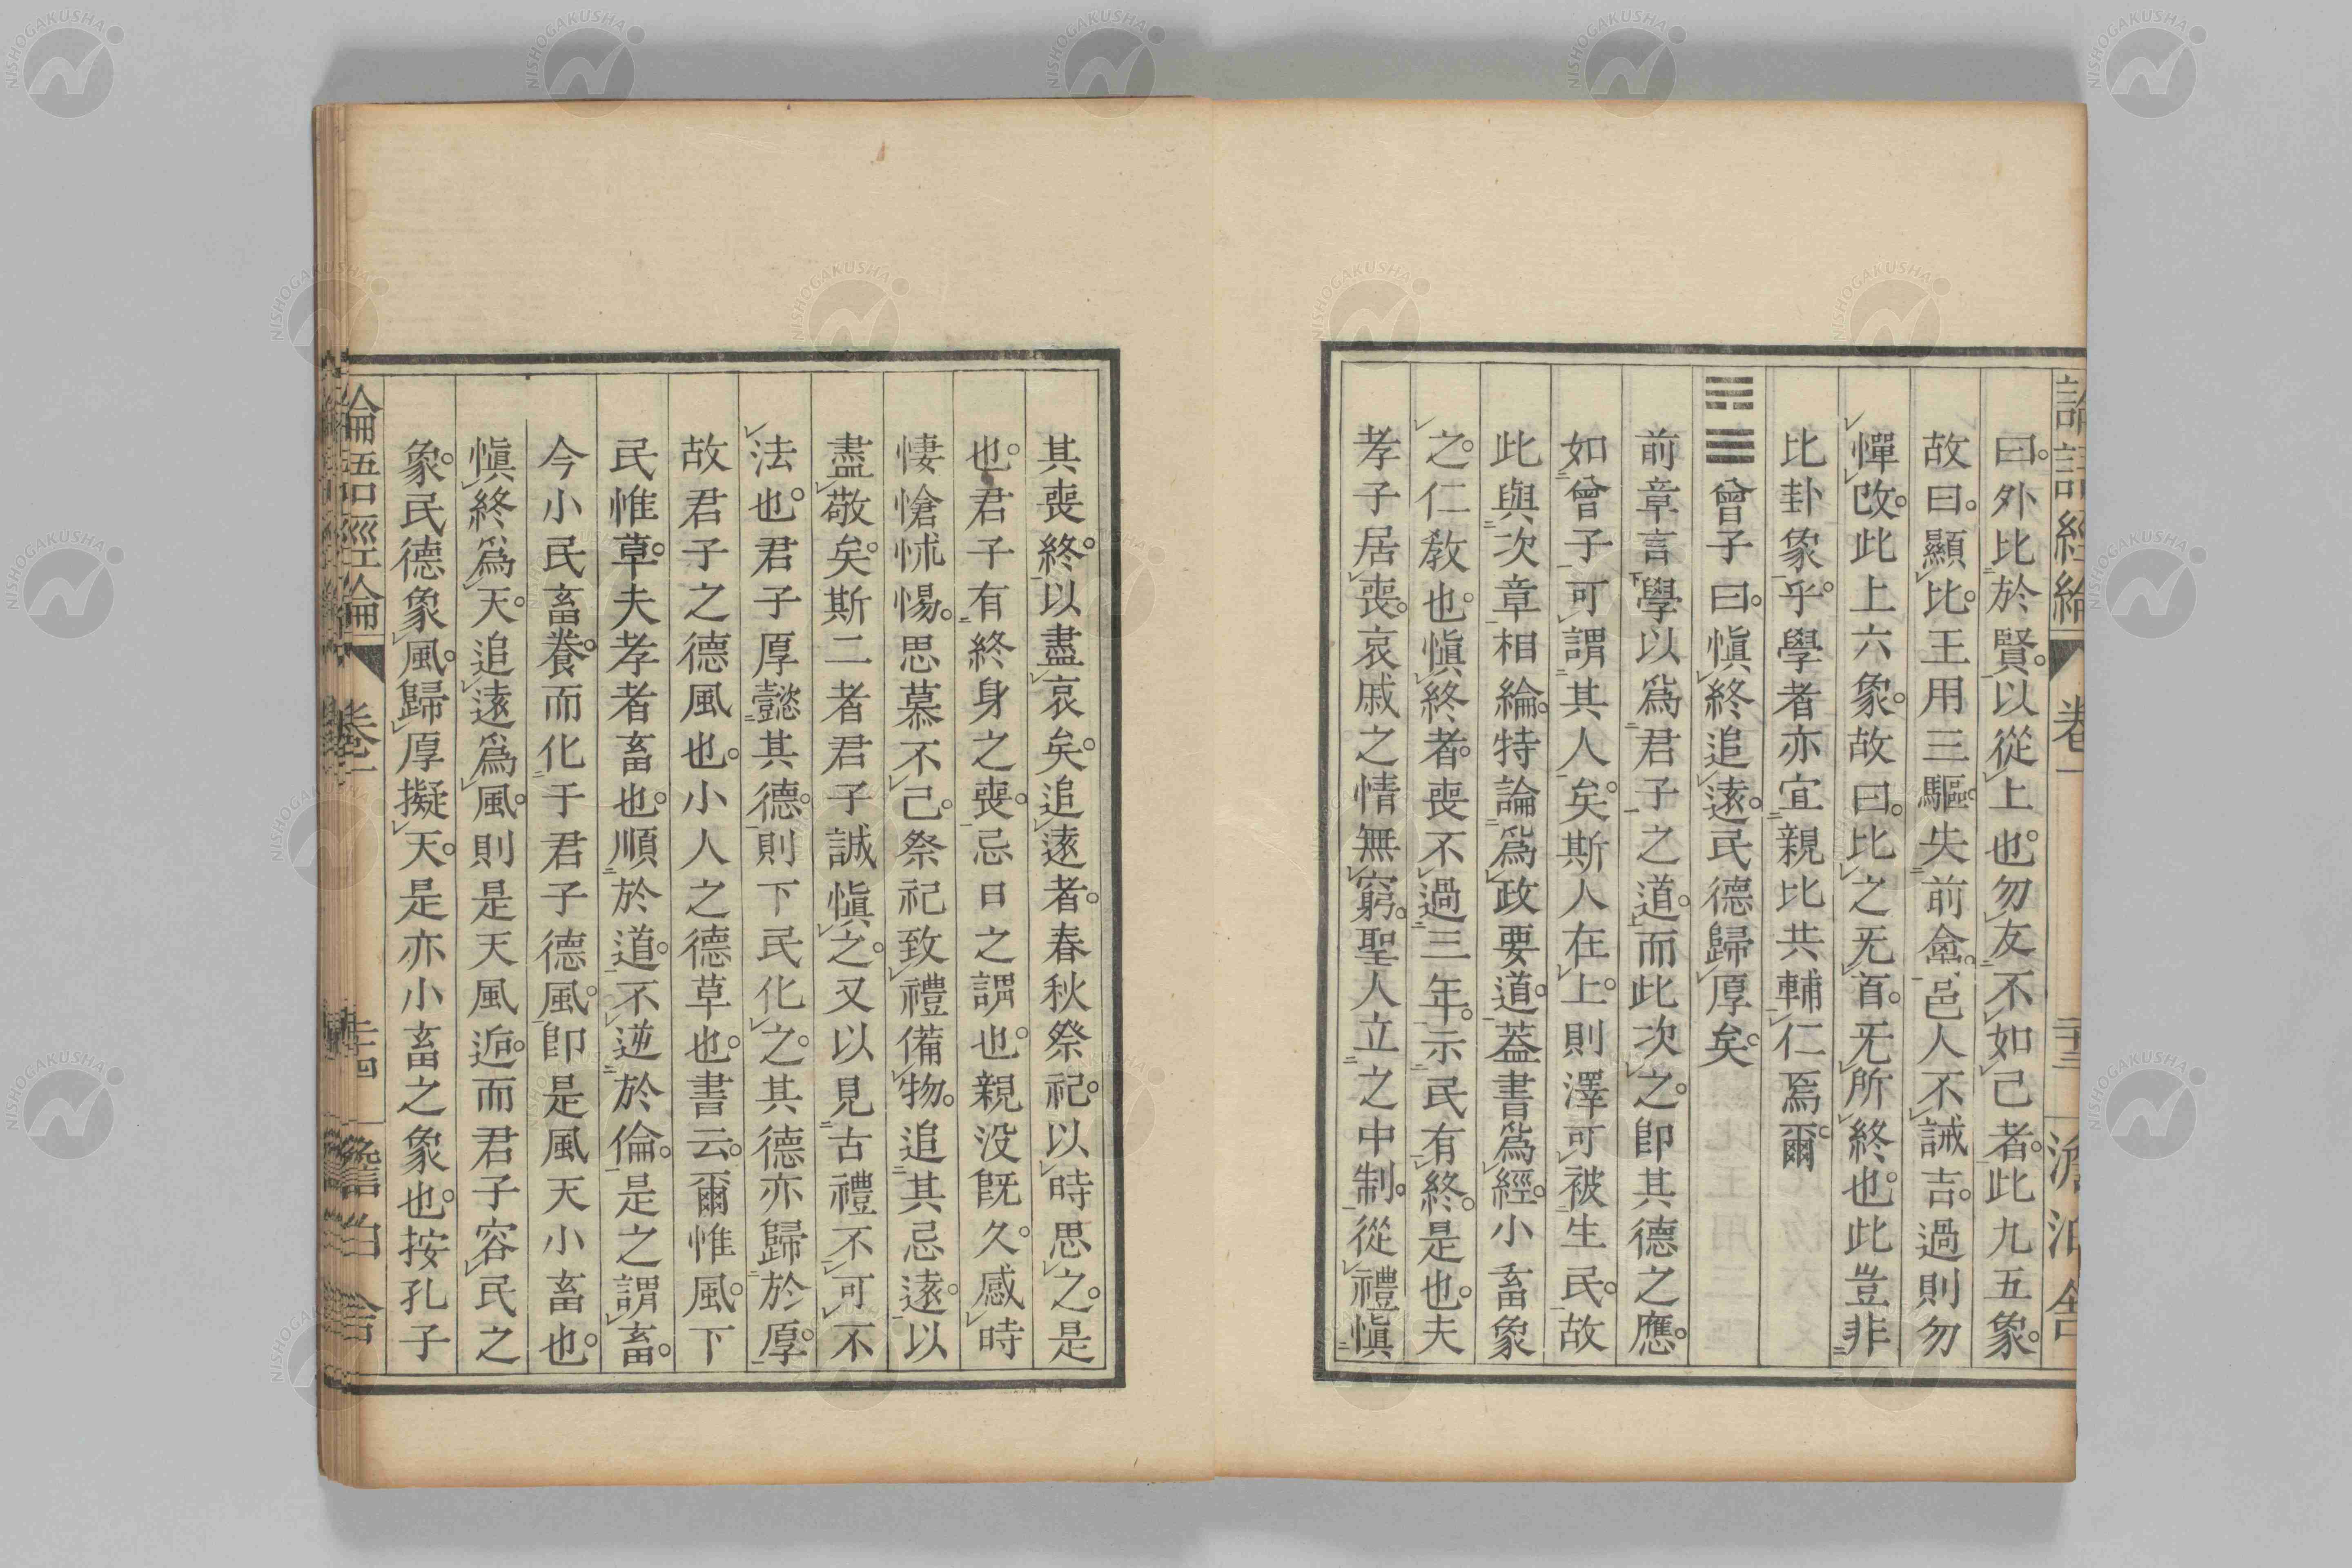 曰。外比於賢。以從上也。勿友不如己者。此九五象。
故曰。顯比。王用三驅。失前禽。邑人不誡吉。過則勿
憚改。此上六象。故曰。比之无首。无所終也。此豈非
比卦象乎。學者亦宜親比共輔仁焉爾
䷈曾子曰。愼終追遠。民德歸厚矣。
前章言學以爲君子之道。而此次之。卽其德之應。
如曾子可謂其人矣。斯人在上。則澤可被生民。故
此與次章相綸。特論爲政要道。葢書爲經。小畜象
之。仁敎也。愼終者。喪不過三年。示民有終。是也。夫
孝子居喪。哀戚之情無窮。聖人立之中制。從禮愼
其喪終。以盡哀矣。追遠者。春秋祭祀。以時思之。是
也。君子有終身之喪。忌日之謂也。親没旣久。感時
悽愴怵惕。思慕不已。祭祀致禮備物。追其忌遠。以
盡敬矣。斯二者君子誠愼之。又以見古禮不可不
法也。君子厚懿其德。則下民化之。其德亦歸於厚。
故君子之德風也。小人之德草也。書云。爾惟風。下
民惟草。夫孝者畜也。順於道。不逆於倫。是之謂畜。
今小民畜養而化于君子德風。卽是風天小畜也。
愼終爲天。追遠爲風。則是天風逅。而君子容民之
象。民德象風。歸厚擬天。是亦小畜之象也。按孔子
論語經綸 卷一 二十四 澹泊舍